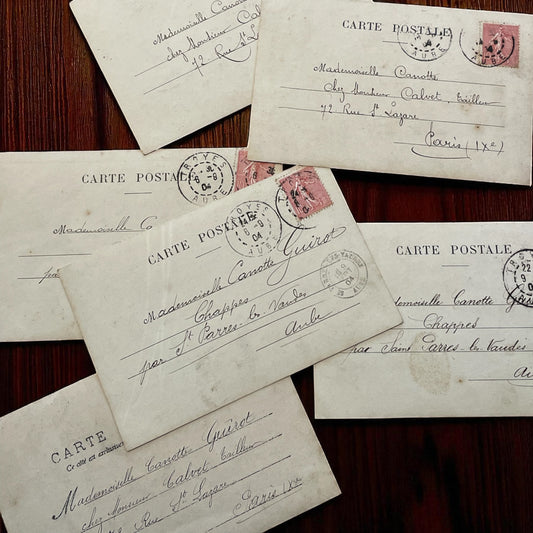 Mademoiselle Canotte
chez Monsieur Calvet
72 Rue St L
CARTE POSTALE
04
AUBE
Mademoiselle Canotte
Chez Monsieur Calvet, tailleur
72 Rue St Lazare
Paris (IXe)
CARTE POSTALE
TROYES
6 -9
04
AUBE
Mademoiselle Ca
CARTE POSTALE
TROYES
6 -9
04
AUBE
Mademoiselle Canotte Guirot
Chappes
par St Parres-les-Vaudes
Aube
CARTE POSTALE
TROY
22
9
04
ademoiselle Canotte Gui
Chappes
par Saint-Parres-les-Vaudes
Au
CARTE
Ce côté est exclusivement
Mademoiselle Canotte Guirot
chez Monsieur Calvet tailleur
Rue St Lazare
Paris IXe